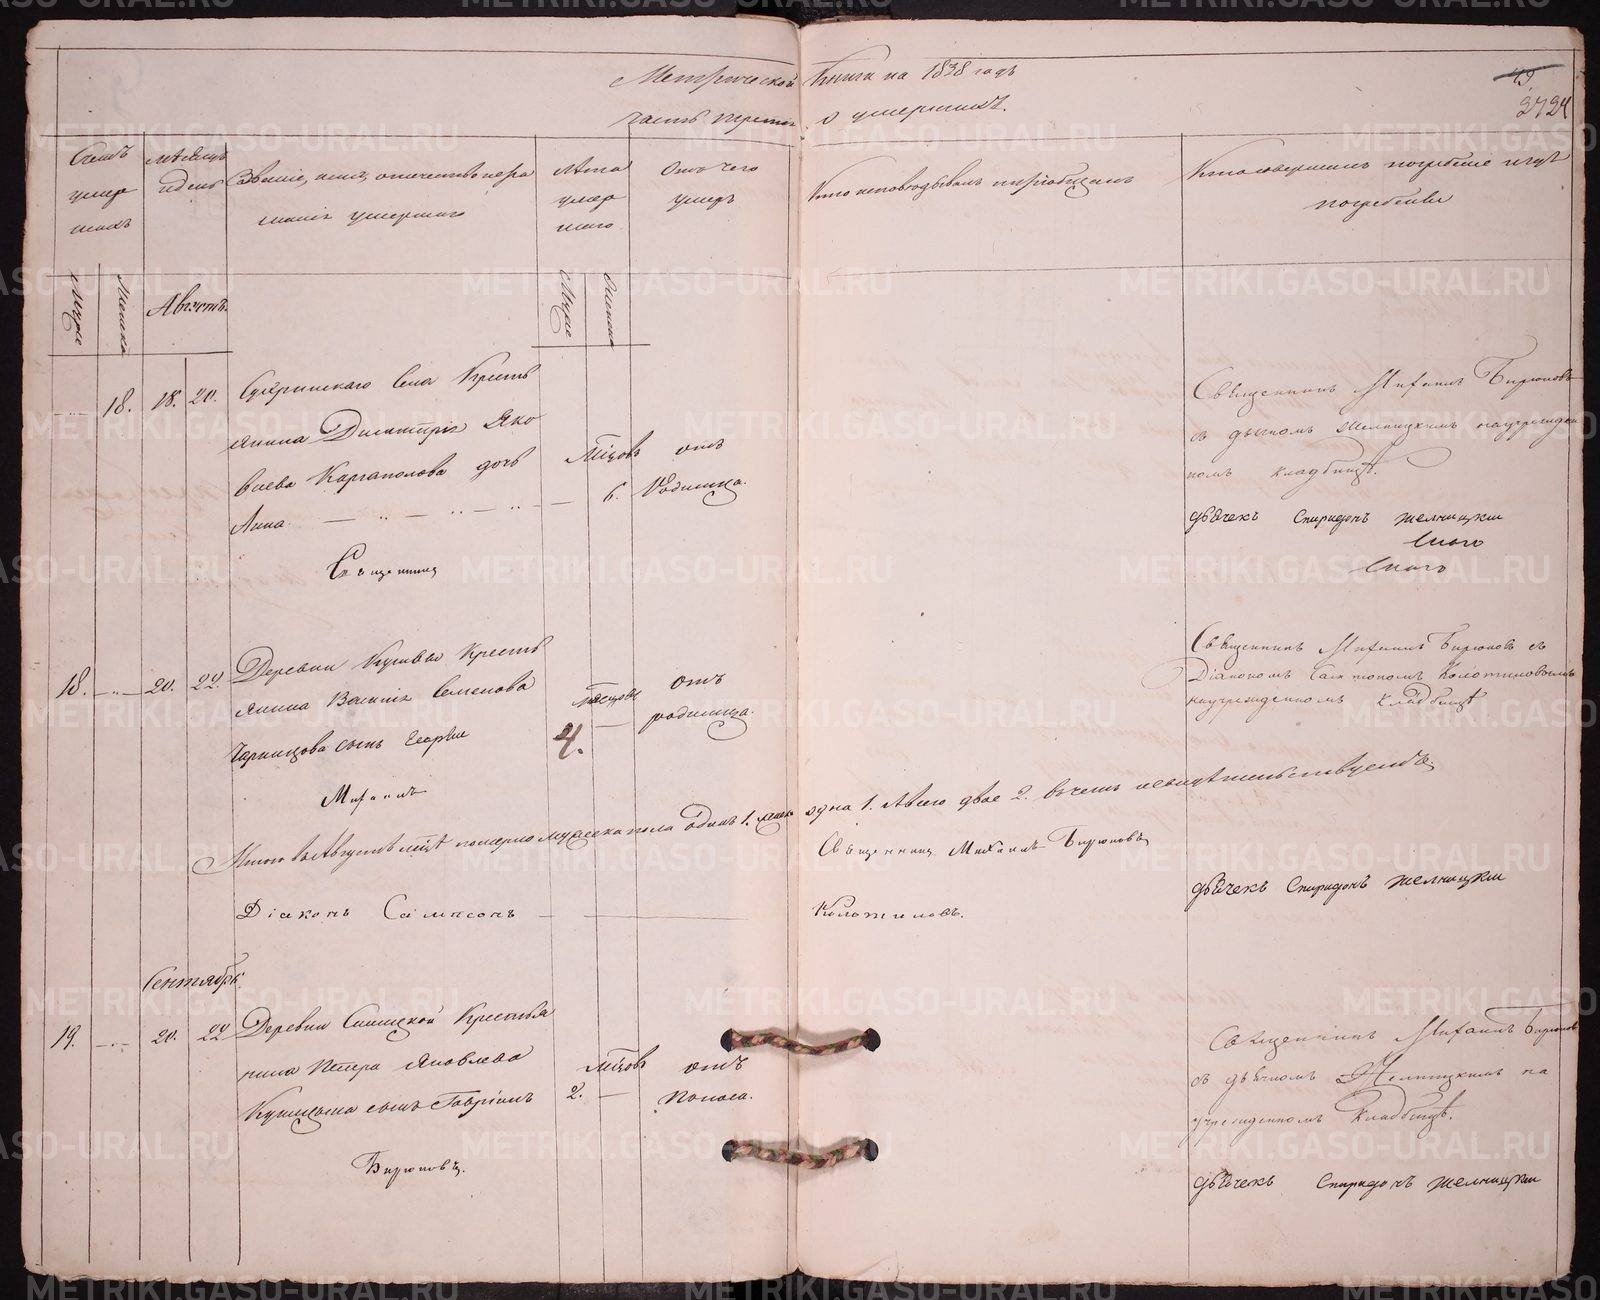 Метрической Книги на 1838 годъ
часть третія о умершихъ.
49
2724
Счетъ умер шихъ
мѣсяцъ и день
Званіе, имя, отечество и фа милія умершаго
Лѣта умер шаго
Отъ чего умеръ
Кто исповѣдывалъ и пріобщалъ
Кто совершалъ погребеніе и гдѣ погребены
Муже
Женска
Августъ.
Муже
Женска
18. 18. 20.
Села Кресть
янина Димитрія Яко
влева Каргаполова дочь
Анна
Мѣцовъ 6.
отъ родимца.
Священникъ
Священникъ Михаилъ Бирюковъ
съ дьячкомъ Желницкимъ на учрежден
номъ кладбищѣ.
дьячекъ Спиридонъ Желницкии
18. 20. 22.
Деревни Кресть
янина Василія Семенова
сынъ Георгіи
Мѣсяцовъ 4.
отъ родимца.
Михаилъ
Священникъ Михаилъ Бирюковъ съ
Діакономъ Сампсономъ Колотиловымъ
на учрежденномъ кладбищѣ
Итого въ Августѣ мцѣ померло мужеска пола одинъ 1. женска одна 1. А всего двое 2. въ чемъ и свидѣтельствуемъ.
Священникъ Михаилъ Бирюковъ
дьячекъ Спиридонъ Желницкии
Діаконъ Сампсонъ Колотиловъ.
Сентябрь.
19. 20. 22
Деревни Крестья
нина Петра Яковлева
сынъ Гавріилъ
Мѣцовъ 2.
отъ поноса.
Бирюковъ.
Священникъ Михаилъ Бирюковъ
съ дьячкомъ Желницкимъ на
учрежденномъ кладбищѣ.
дьячекъ Спиридонъ Желницкии
METRIKI.GASO-URAL.RU